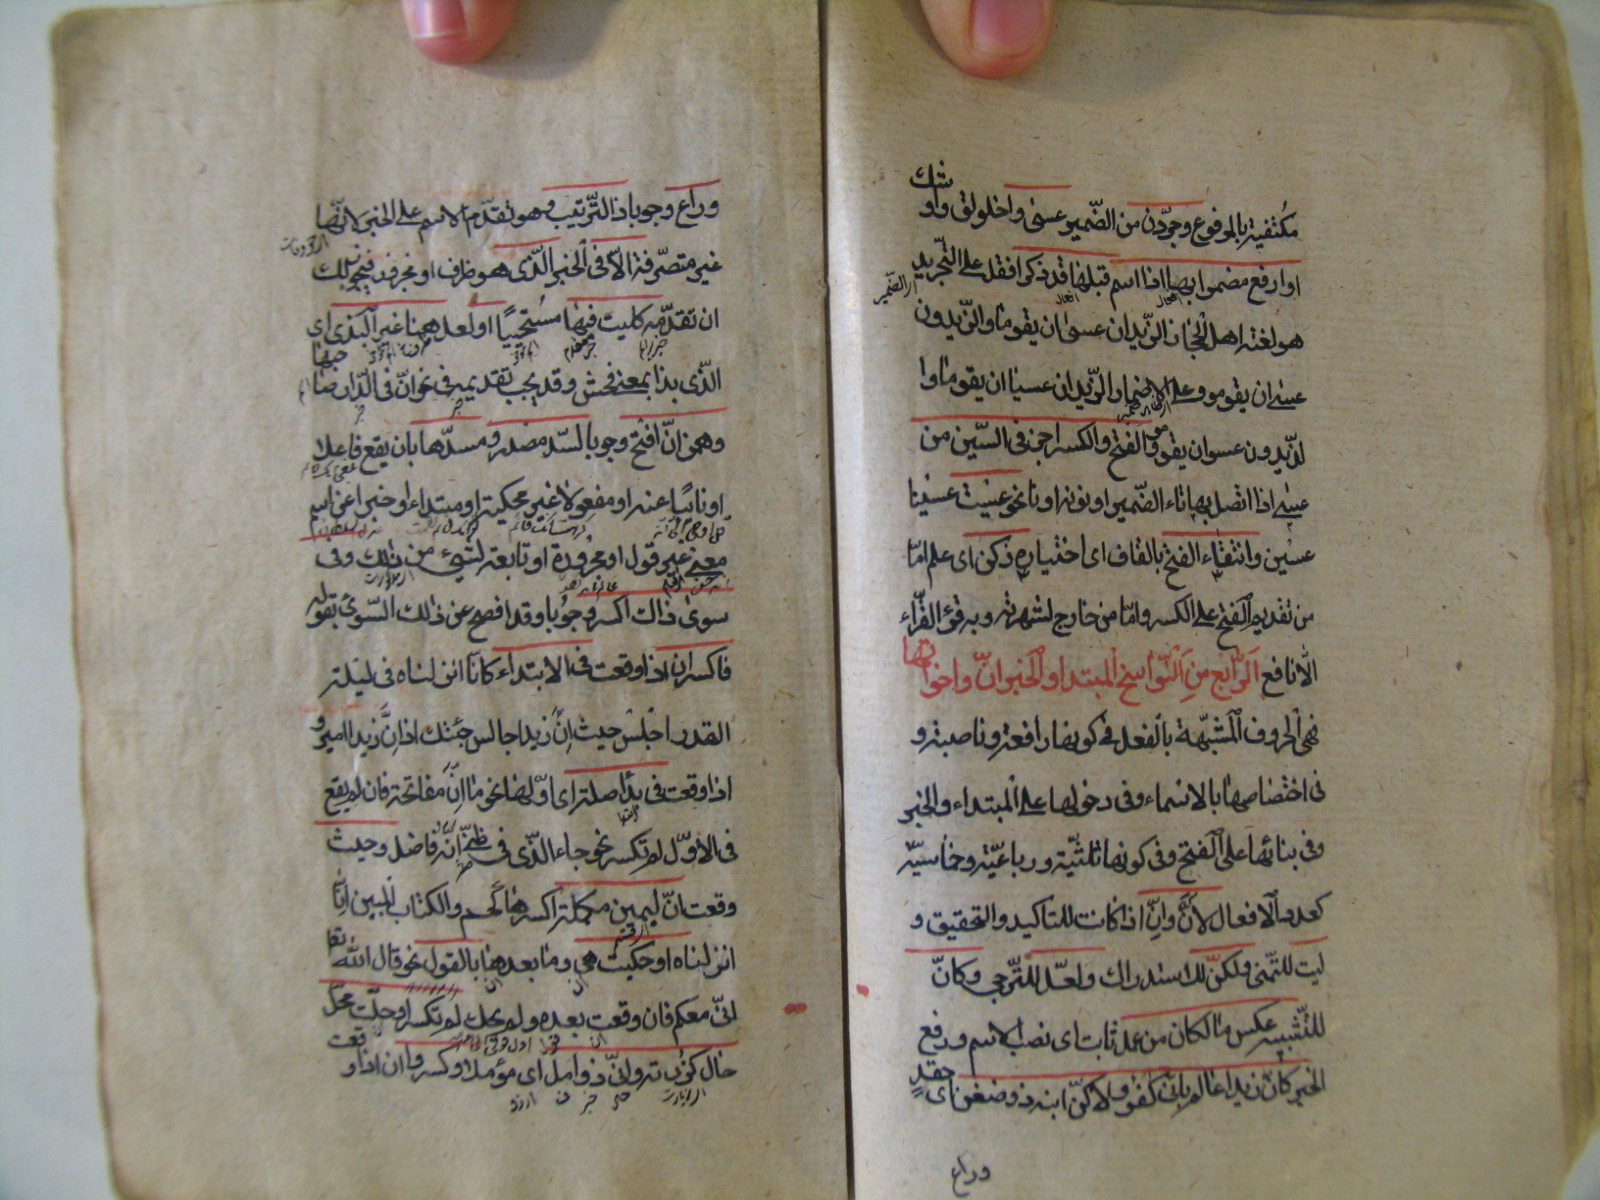 مكتفية بالمرفوع وجردن من الضمير عسى واخلولق واو
شك
او ارفع مضمرا بها اذا اسم قبلها قد ذكرا فقل على التجريد
هو لغة اهل الحجاز الزيدان عسى ان يقوما والزيدون
عسى ان يقومو وعلى الاضمار الزيدان عسيا ان يقوما وا
لزيدون عسوا ان يقوموا والفتح والكسر اجز فى السين من
عسى اذا اتصل بها تاء الضمير او نونه او نا نحو عسيت عسينا
عسين وانتقاء الفتح بالقاف اى اختياره زكن اى علم امّا
من تقديم الفتح على الكسر وامّا من خارج لشهرته وبه قرء القرّاء
الا نافع الرّابع من النّواسخ المبتدا والخبر انّ واخواتها
فهى الحروف المشبّهة بالفعل فى كونها رافعة وناصبة و
فى اختصاصها بالاسماء وفى دخولها على المبتداء والخبر
وفى بنائها على الفتح وفى كونها ثلثيّة ورباعيّة وخماسيّة
كعدد الافعال لأنّ وانّ اذ كانت للتاكيد والتحقيق و
ليت للتّمنى ولكنّ للاستدراك ولعلّ للتّرجى وكانّ
للتّشبيه عكس ما لكان من عمل ثابت اى نصب الاسم ورفع
الخبر كان زيدا عالم بانّى كفو ولاكنّ ابنه ذو ضغن اى
حقد
وراع
وراع وجوبا ذا التّرتيب وهو تقدّم الاسم على الخبر لانّها
غير متصرّفة الّا فى الخبر الّذى هو ظرف او مجرور فيجوز لك
ان تقدّمه كليت فيها مستحييا او لعل هيهنا غير البذى اى
الّذى بذا بمعنى فحش وقد يجب تقديمه فى نحو انّ فى الدّار صا
حبها
وهمز انّ افتح وجوبا لسدّ مصدر مسدّها بان يقع فاعلا
او نائبا عنه او مفعولا غير محكيّة او مبتداء او خبرا عن اسم
معنى غير قول او مجرورة او تابعة لشىء من ذلك وفى
سوى ذاك اكسر وجوبا وقد افصح عن ذلك السّوى بقوله
فاكسر ان اذا وقعت فى الابتداء كانّا انزلناه فى ليلة
القدر اجلس حيث انّ زيدا جالس جئتك اذ انّ زيدا امير و
اذا وقعت فى بدأ صلة اى اوّلها نحو ما انّ مفاتحه فان لم يقع
فى الاوّل لم تكسر نحو جاء الّذى فى ظنّى انّه فاضل وحيث
وقعت انّ ليمين مكملة اكسرها كحم والكتاب المبين انّا
انزلناه او حكيت هى وما بعدها بالقول نحو قال اللّه تعا
انّى معكم فان وقعت بعده ولم تحك لم تكسر او حلّت محلّ
حال كزرته وانّى ذو امل اى مؤملا وكسروا ان اذا و
قعت